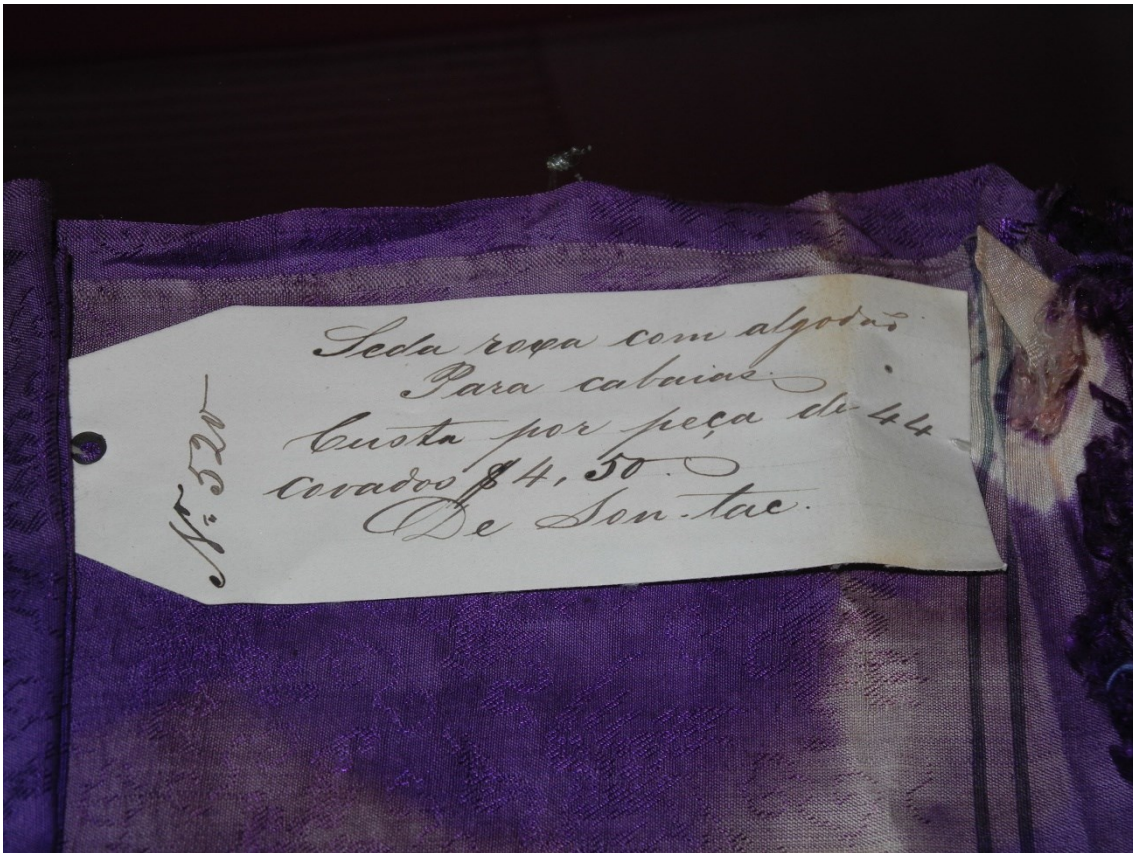 Nº 520
Seda roxa com algodão
Para cabaias.
Custa por peça de 44
covados $ 4, 50.
De Son-tac.